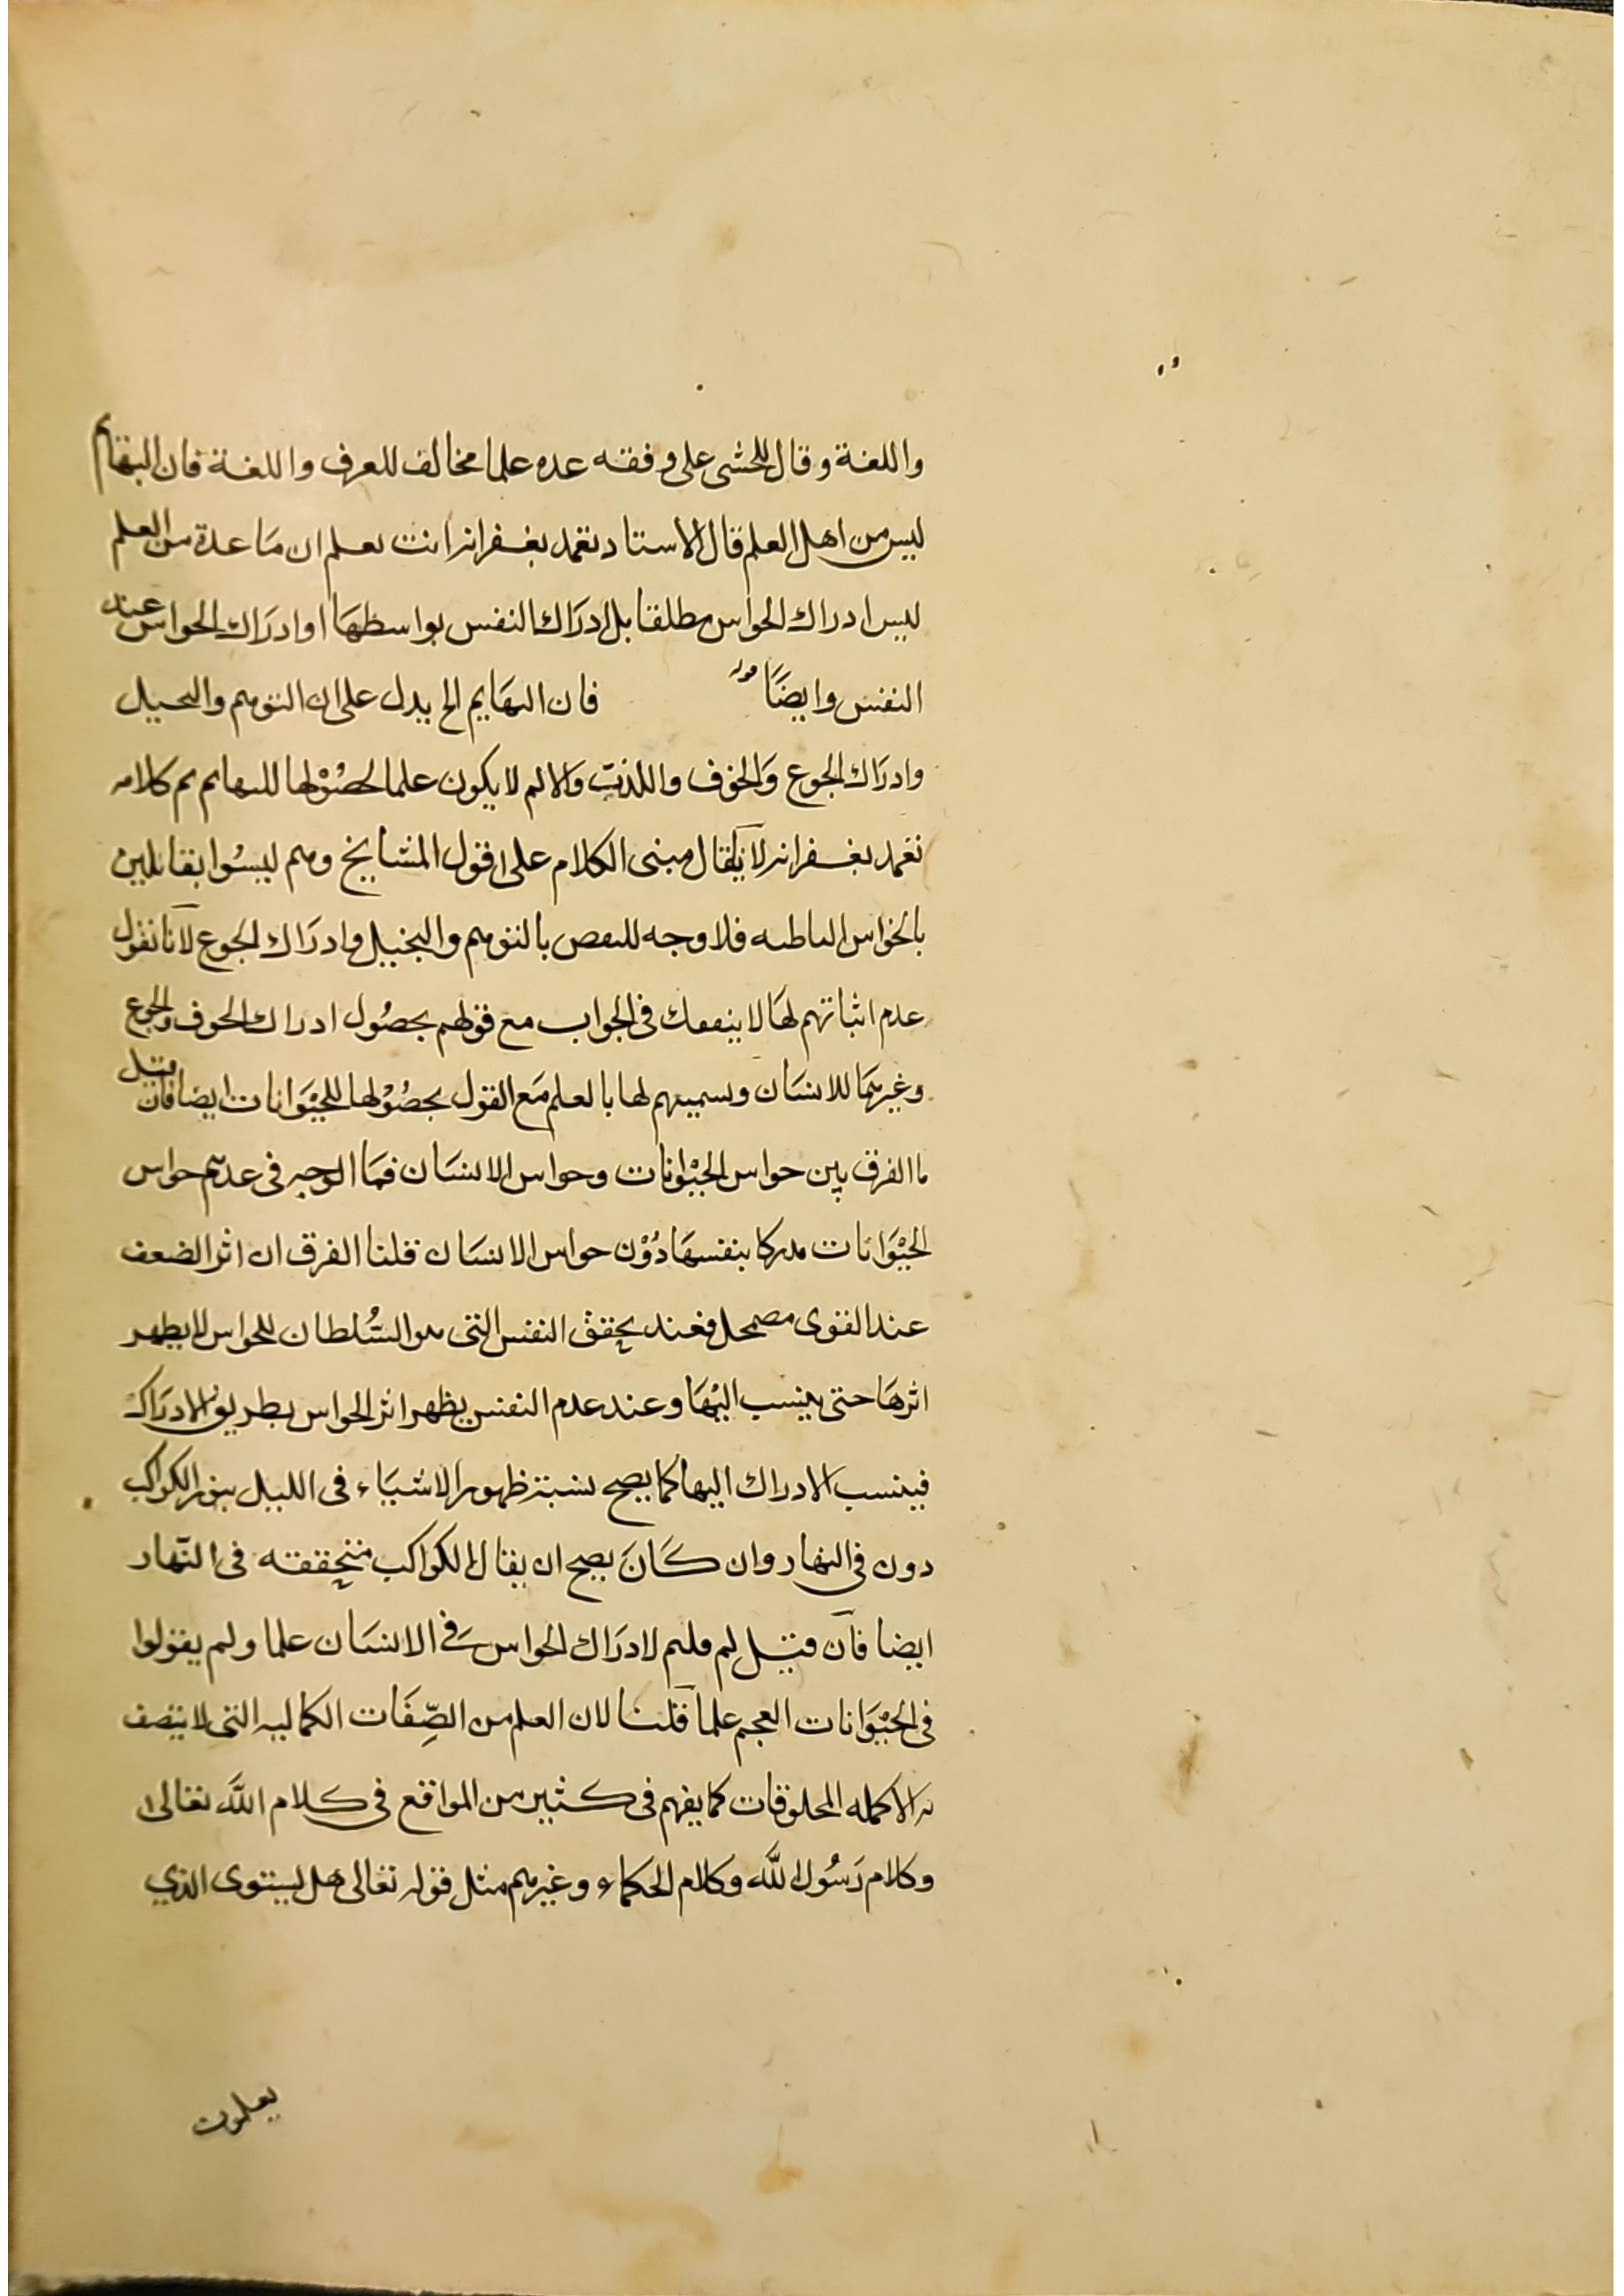 واللغة وقال المحشى على وفقه عده علما مخالف للعرف واللغة فان البهايم
ليس من اهل العلم قال الاستاد تغمد بغفرانه انت تعلم ان ما عدة من العلم
ليس ادراك الحواس مطلقا بل ادراك النفس بواسطها او ادراك الحواس عند
النفس وايضًا قوله فان البهايم الخ يدل على ان التوهم والتخيل
وادراك الجوع والخوف واللذت والالم لا يكون علما لحصولها للبهايم تم كلامه
تغمد بغفرانه لا يقال مبنى الكلام على اقول المشايخ وهم ليسوا بقائلين
بالحواس الباطنه فلا وجه للنقض بالتوهم والتخيل وادراك الجوع لانا نقول
عدم اثباتهم لها لا ينفعك فى الجواب مع قولهم بحصول ادراك الخوف والجوع
وغيرهما للانسان وتسميتهم لها بالعلم مع القول بحصولها للحيوانات ايضا فان قيل
ما الفرق بين حواس الحيوانات وحواس الانسان فما الوجه فى عدهم حواس
الحيوانات مدركا بنفسها دون حواس الانسان قلنا الفرق ان اثر الضعف
عند القوى مضمحل فعند تحقق النفس التى هو السُّلطان للحواس لا يظهر
اثرها حتى ينسب اليها وعند عدم النفس يظهر اثر الحواس بطريق الادراك
فينسب الادراك اليها كما يصح نسبة ظهور الاشياء فى الليل بنور الكواكب
دون فى النهار وان كان يصح ان يقال الكواكب متحققه فى النّهار
ايضا فان قيل لم قلتم لادراك الحواس فى الانسان علما ولم يقولوا
فى الحيوانات العجم علما قلنا لان العلم من الصِّفَات الكماليه التى لا يتصف
به الا كمله المخلوقات كما يفهم فى كثير من المواقع فى كلام اللّه تعالى
وكلام رَسُول اللّه وكلام الحكماء وغيرهم مثل قوله تعالى هل يستوى الذي
يعلمون